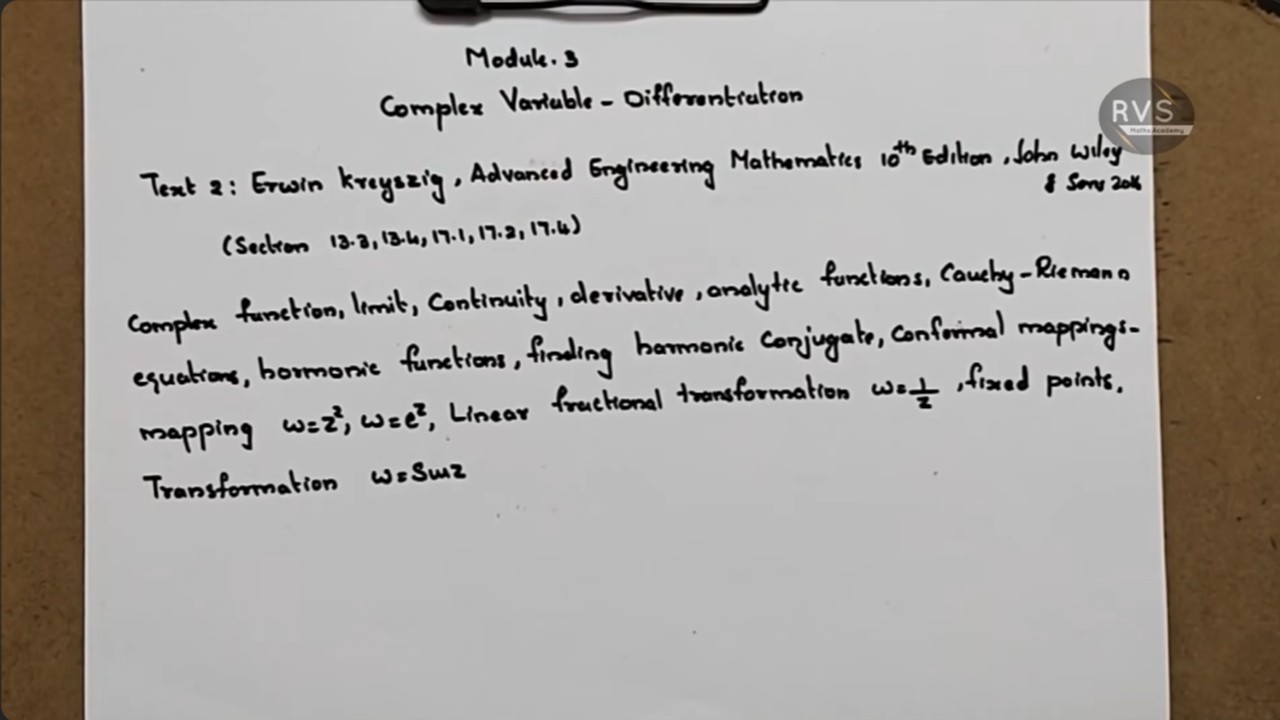 Module. 3
Complex Variable - Differentiation
Text 2: Erwin Kreyszig, Advanced Engineering Mathematics 10th Edition, John Wiley
& Sons 2016
(Section 13.3, 13.4, 17.1, 17.2, 17.4)
Complex function, limit, Continuity, derivative, analytic functions, Cauchy-Riemann
equations, harmonic functions, finding harmonic Conjugate, Conformal mappings-
mapping w=z², w=e^z, Linear fractional transformation w=1/z, fixed points,
Transformation w=Sinz
RVS
Maths Academy